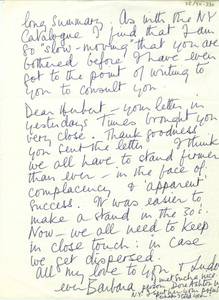 long Summary. As with the NY
Catalogue I find that I am
so "slow-moving" that you are
bothered before I have ever
get to the point of writing to
you to consult you.
Dear Herbert – your letter in
yesterdays Times brought you
very close. Thank goodness
you sent the letter. I think
we all have to stand firmer
than ever – in the face of
complacency & 'apparent'
success. It was easier to
make a stand in the 30's.
Now – we all need to keep
in close touch: in case
we get dispersed.
All my love to you & Ludo
ever Barbara
Dore Ashton
N.Y.